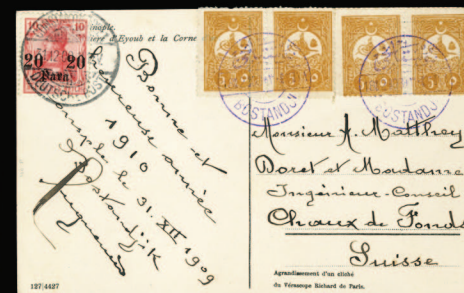 10 10
20 20
Para
d'Eyoub et la Corne
5 5 5 5
BOSTANDJ
BOSTANDJ
Bonne et
heureuse année
1910
le 31. XII 1909
Bostandjik
Monsieur A. Matthey
Doret et Madame
Ingénieur-Conseil
Chaux de Fonds
Suisse
Agrandissement d'un cliché
du Vérascope Richard de Paris.
127|4427